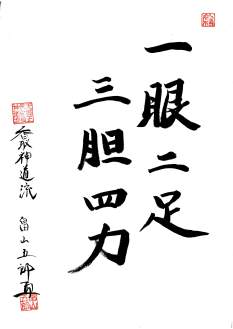 一眼二足
三胆四力
神道流 畠山五郎